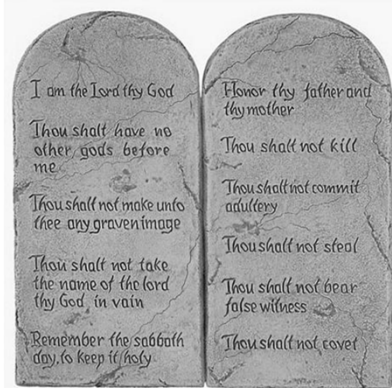 I am the Lord thy God
Thou shalt have no
other gods before
me
Thou shall not make unto
thee any graven image
Thou shalt not take
the name of the lord
thy God in vain
Remember the sabbath
day, to keep it holy
Honor thy father and
thy mother
Thou shalt not kill
Thou shall not commit
adultery
Thou shalt not steal
Thou shalt not bear
false witness
Thou shalt not covet